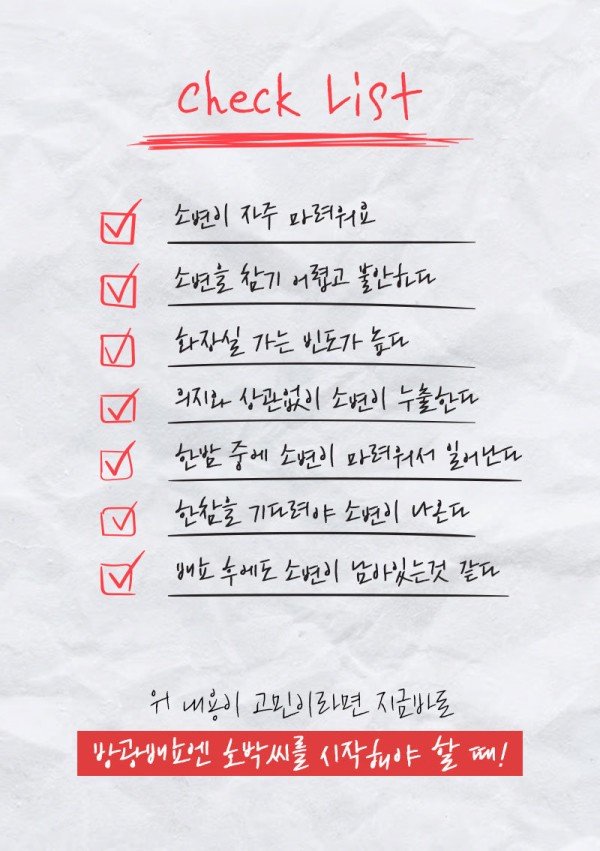 Check List
소변이 자주 마려워요
소변을 참기 어렵고 불안하다
화장실 가는 빈도가 높다
의지와 상관없이 소변이 누출한다
한밤 중에 소변이 마려워서 일어난다
한참을 기다려야 소변이 나온다
배뇨 후에도 소변이 남아있는것 같다
위 내용이 고민이라면 지금바로
방광배뇨엔 호박씨를 시작해야 할 때!